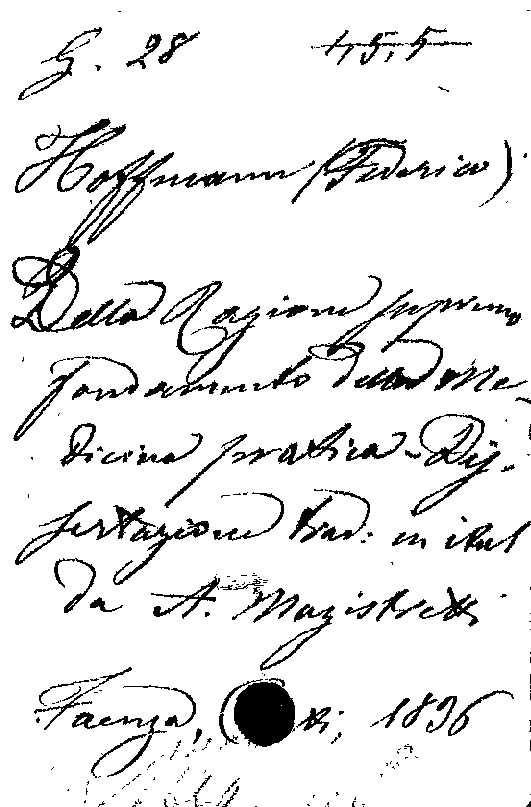 G. 28 4,5,5
Hoffmann (Federico)
Della Ragione supremo
fondamento della Me-
dicina pratica - Dis-
sertazione trad: in ital
da A. Magistretti
Faenza, 1836